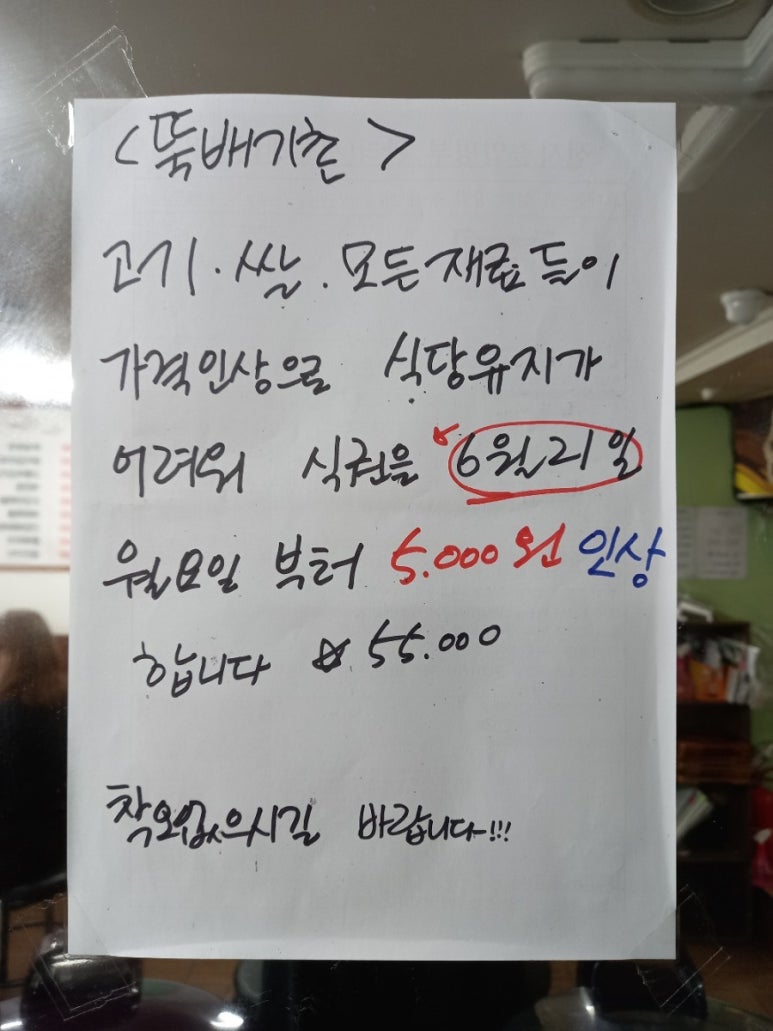 <뚝배기촌>
고기. 쌀. 모든 재료들이
가격인상으로 식당유지가
어려워 식권을 6월 21일
월요일 부터 5.000원 인상
합니다 ☆ 55.000
착오없으시길 바랍니다!!!